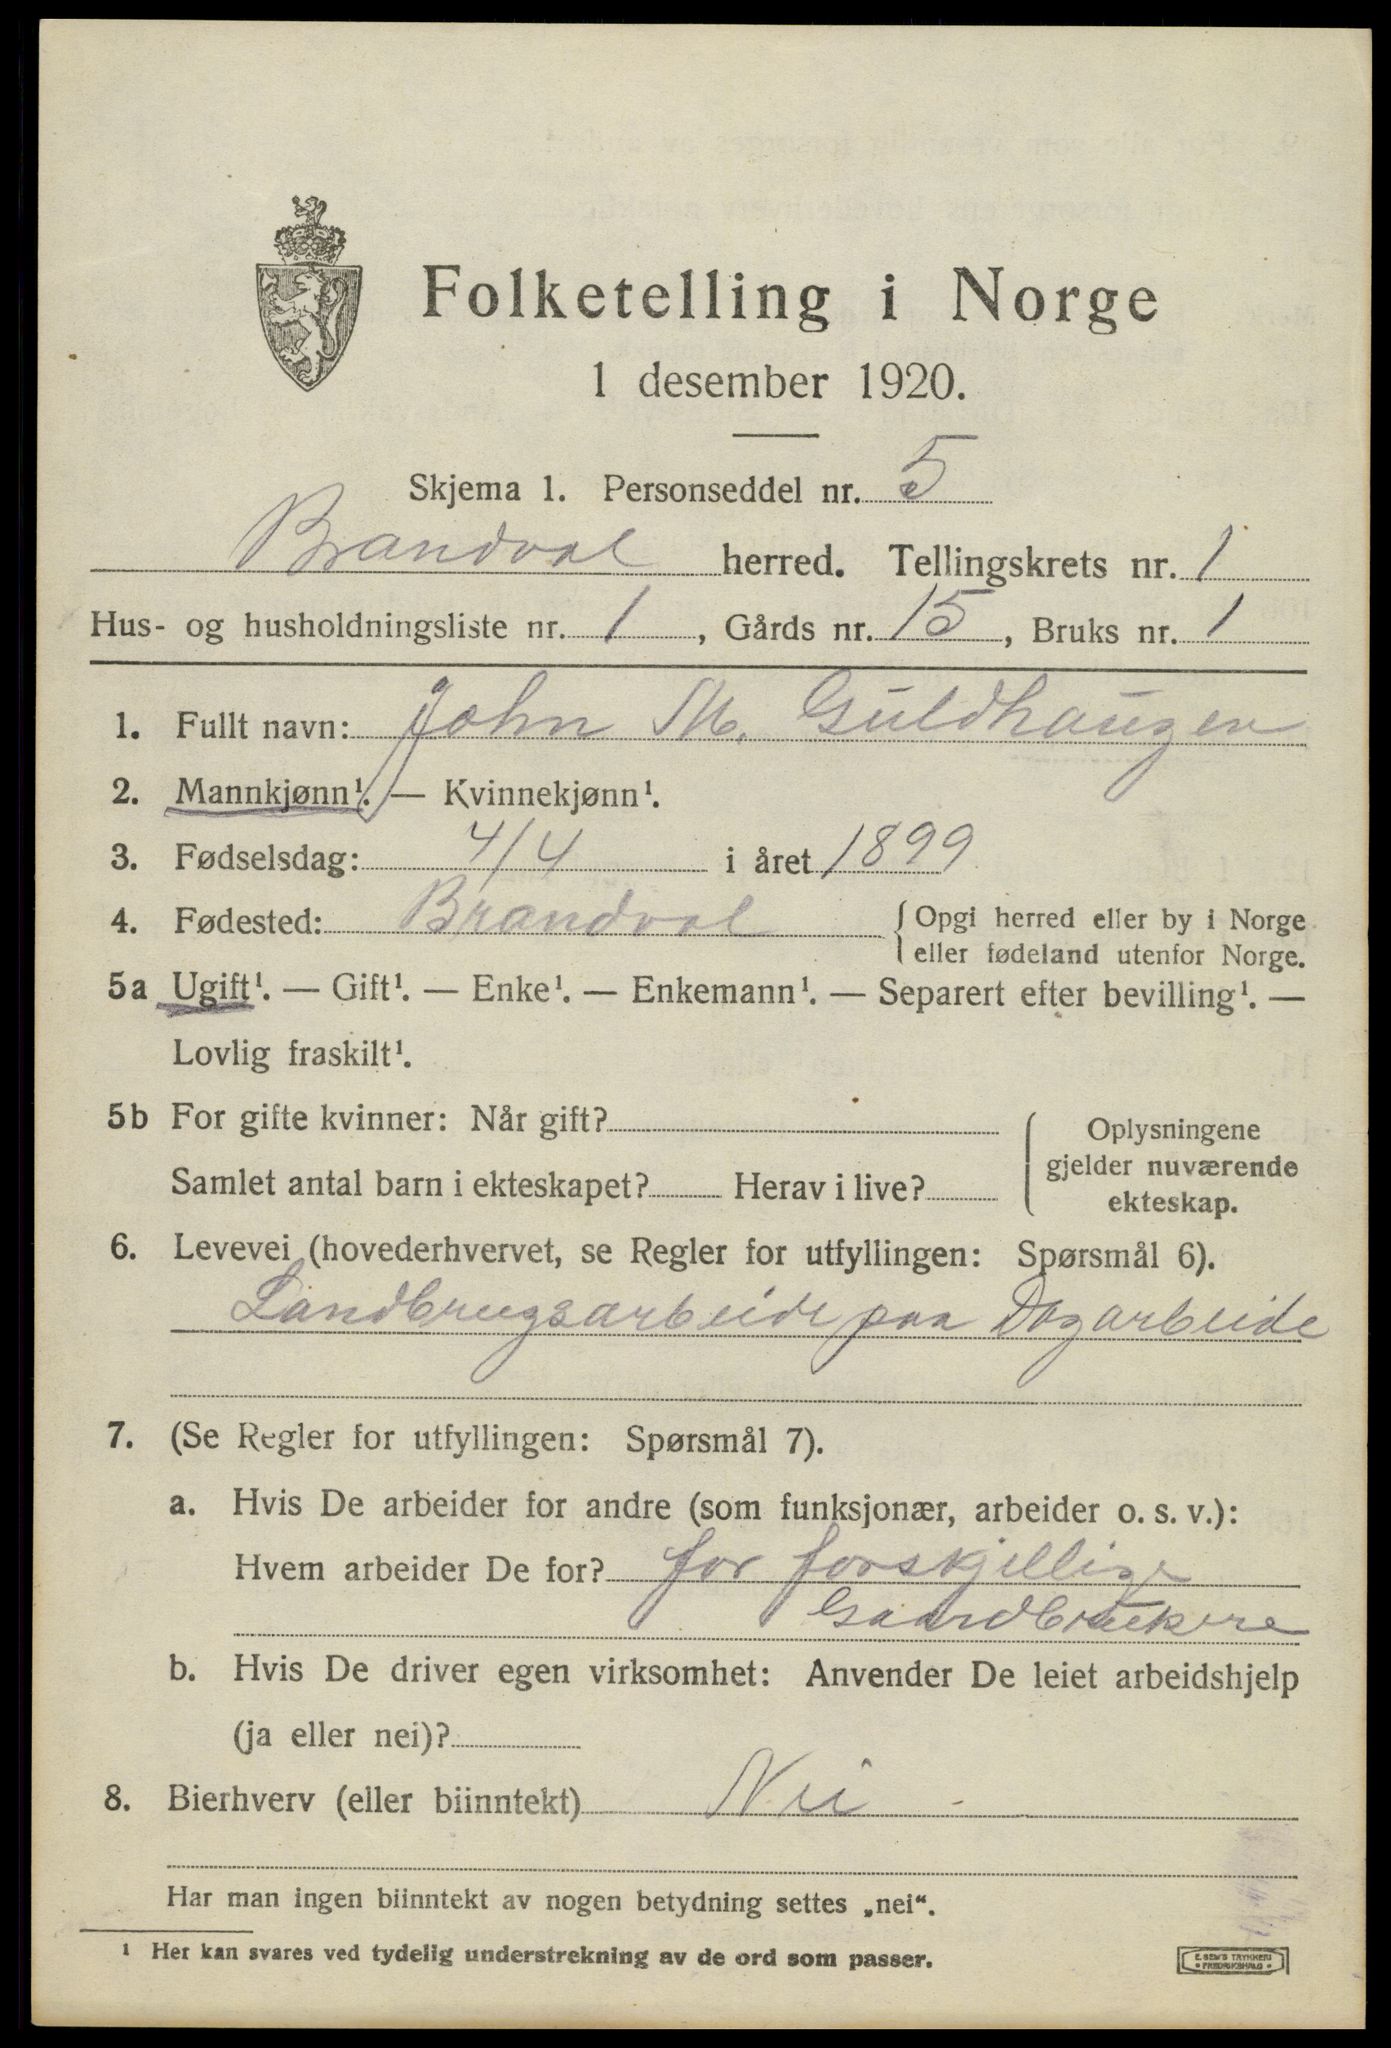 Folketelling i Norge
1 desember 1920.
Skjema 1. Personseddel nr. 5
Brandval herred. Tellingskrets nr. 1
Hus- og husholdningsliste nr. 1, Gårds nr. 15, Bruks nr. 1
1. Fullt navn: John M. Guldhaugen
2. Mannkjønn¹. — Kvinnekjønn¹.
3. Fødselsdag: 4/4 i året 1899
4. Fødested: Brandval { Opgi herred eller by i Norge
eller fødeland utenfor Norge.
5a Ugift¹. — Gift¹. — Enke¹. — Enkemann¹. — Separert efter bevilling¹. —
Lovlig fraskilt¹.
5b For gifte kvinner: Når gift?
Samlet antal barn i ekteskapet? Herav i live?
{ Oplysningene
gjelder nuværende
ekteskap.
6. Levevei (hovederhvervet, se Regler for utfyllingen: Spørsmål 6).
Landbrugsarbeide paa Dagarbeide
7. (Se Regler for utfyllingen: Spørsmål 7).
a. Hvis De arbeider for andre (som funksjonær, arbeider o. s. v.):
Hvem arbeider De for? for forskjellige
Gaardbrukere
b. Hvis De driver egen virksomhet: Anvender De leiet arbeidshjelp
(ja eller nei)?
8. Bierhverv (eller biinntekt) Nei
Har man ingen biinntekt av nogen betydning settes „nei“.
¹ Her kan svares ved tydelig understrekning av de ord som passer.
E. SEM'S TRYKKERI
• FREDRIKSHALD •